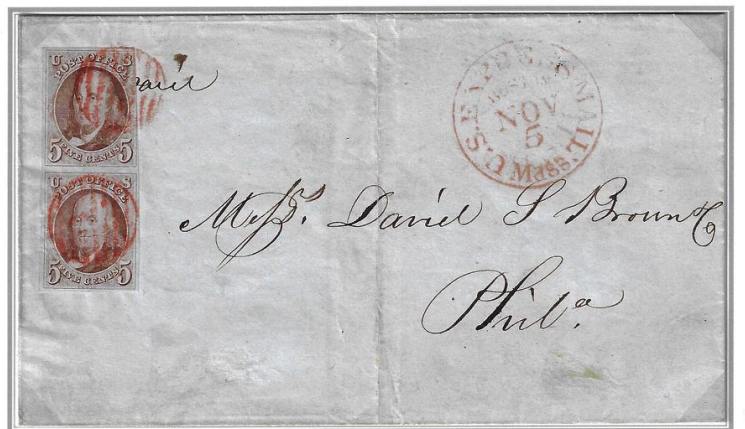 U S
POST OFFICE
5 FIVE CENTS 5
U S
POST OFFICE
5 FIVE CENTS 5
U.S. EXPRESS MAIL
BOSTON
NOV
5
Mass.
Mess^rs. David S Brown & Co
Phil^a.